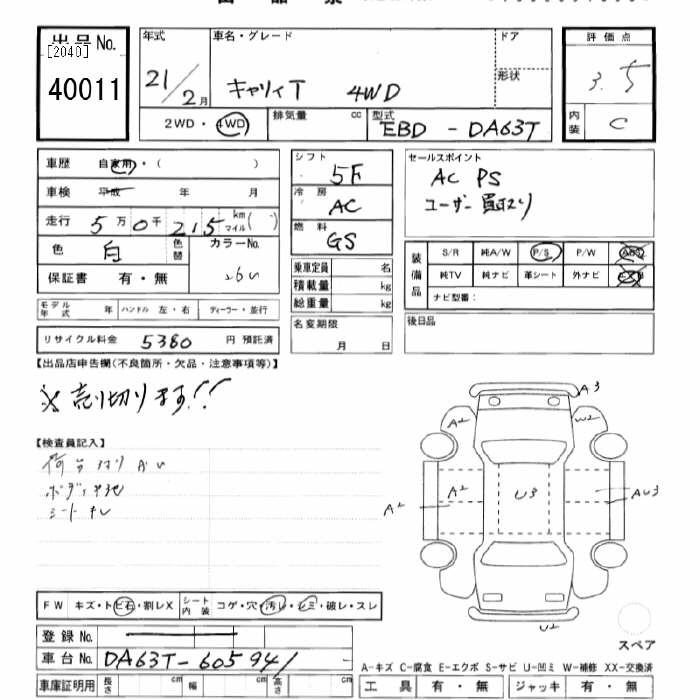 出品No.
[2040]
40011
年式
21/2月
車名・グレード
キャリィT 4WD
ドア
形状
評価点
3.5
内装
C
2WD・4WD
排気量 cc
型式
EBD-DA63T
車歴 自家用・( )
車検 平成 年 月
走行 5万0千215km マイル( )
色 白 色替
カラーNo.
26U
保証書 有・無
シフト
5F
冷房
AC
燃料
GS
乗車定員 名
積載量 kg
総重量 kg
セールスポイント
AC PS
ユーザー買取り
装備品
S/R 純A/W P/S P/W
純TV 純ナビ 革シート 外ナビ
ナビ型番:
モデル年式 年 ハンドル 左・右 ディーラー・並行
リサイクル料金 5380 円 預託済
名変期限
月 日
後日品
【出品店申告欄(不良箇所・欠品・注意事項等)】
※売り切ります!!
【検査員記入】
シート
A3
A2
W2
A2
A2
U3
AU3
U2
FW キズ・トビ石・割レX
シート内装 コゲ・穴・汚レ・シミ・破レ・スレ
登録No.
車台No. DA63T-605941
車庫証明用 長さ cm 幅 cm 高さ cm
スペア
A-キズ C-腐食 E-エクボ S-サビ U-凹ミ W-補修 XX-交換済
工具 有・無 ジャッキ 有・無